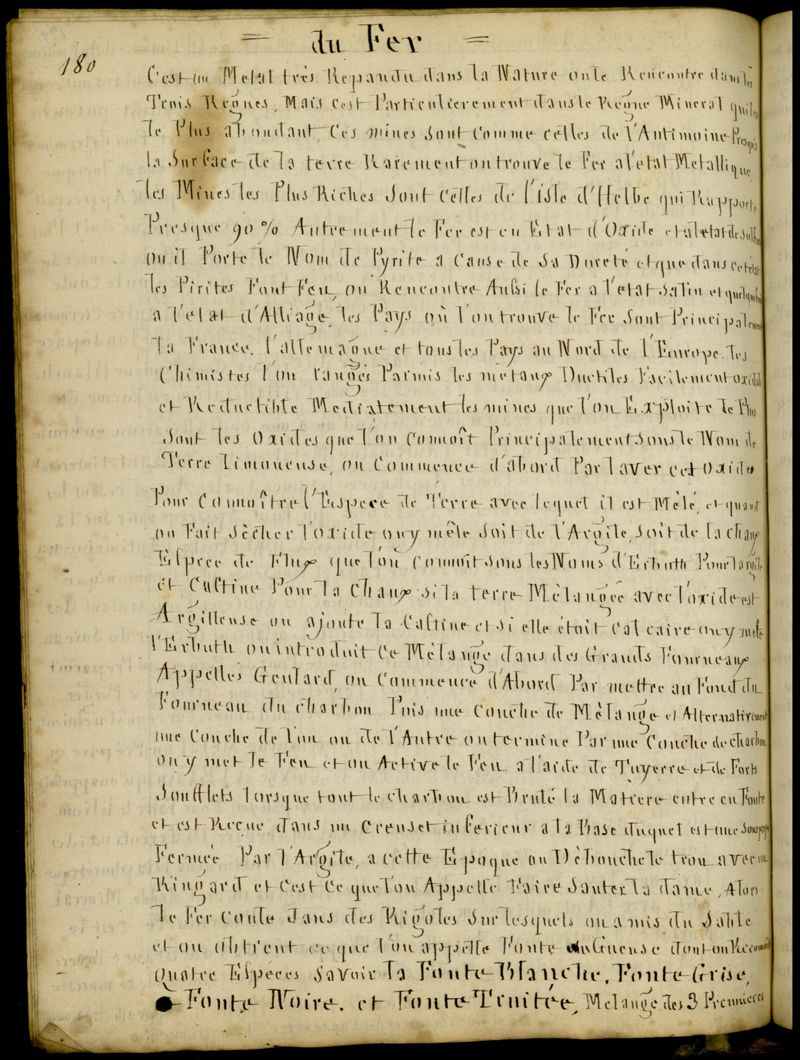 180
= du Fer =
C'est un Metal très Repandu dans la Nature on le Rencontre dans les
Trois Regnes, Mais c'est Particulierement dans le Regne Mineral qu'il est
le Plus abondant, Ces mines sont comme celles de l'Antimoine
la Surface de la terre Rarement on trouve le Fer a l'etat Metallique
les Mines les Plus Riches sont celles de l'isle d'Helbe qui Rapporte
Presque 90 % Autrement le Fer est en Etat d'Oxide et a l'etat de Sulfure
ou il Porte le Nom de Pyrite a cause de sa Dureté et que dans cet etat
les Pirites Font Feu, on Rencontre Aussi le Fer a l'etat Salin et quelquefois
a l'etat d'Alliage, les Pays où l'on trouve le Fer sont Principalement
la France, l'allemagne et tous les Pays au Nord de l'Eurrope, les
Chimistes l'on rangés Parmis les metaux Ductiles Facilement oxidable
et Reductible Mediatement les mines que l'on Exploite le Plus
sont les Oxides que l'on connoît Principalement sous le Nom de
Terre limoneuse, on Commence d'abord Par laver cet oxide
Pour connoître l'Espece de Terre avec lequel il est Mêlé, et quand
on Fait Sècher l'oxide on y mêle soit de l'Argile, soit de la chaux
Espece de Flux que l'on connoît sous les Noms d'Erbuth Pour l'argile
et Castine Pour la Chaux si la terre Mèlangée avec l'oxide est
Argilleuse on ajoute la Castine et si elle étoit calcaire on y mele
l'Erbuth on introduit ce Mèlange dans des Grands Fourneaux
Appelles Geulard, on Commence d'Abord Par mettre au Fond du
Fourneau du charbon Puis une couche de Mèlange et Alternativement
une Couche de l'un ou de l'Autre on termine Par une Couche de charbon
on y met le Feu et on Active le Feu a l'aide de Tuyerre et de Forts
Soufflets lorsque tout le charbon est Brulé la Matiere entre en Fonte
et est Recue dans un Creuset inferieur a la Base duquel est une
Fermée Par l'Argile, a cette Epoque on Débouche le trou avec un
Ringard et C'est ce que l'on Appelle Faire Sauter la dame, Alors
le Fer Coule dans des Rigoles sur lesquels on a mis du Sable
et on obtient ce que l'on appelle Fonte en Gueuse dont on Reconnoit
Quatre Especes Savoir la Fonte Blanche, Fonte Grise,
Fonte Noire, et Fonte Truitée, Melange des 3 Premieres